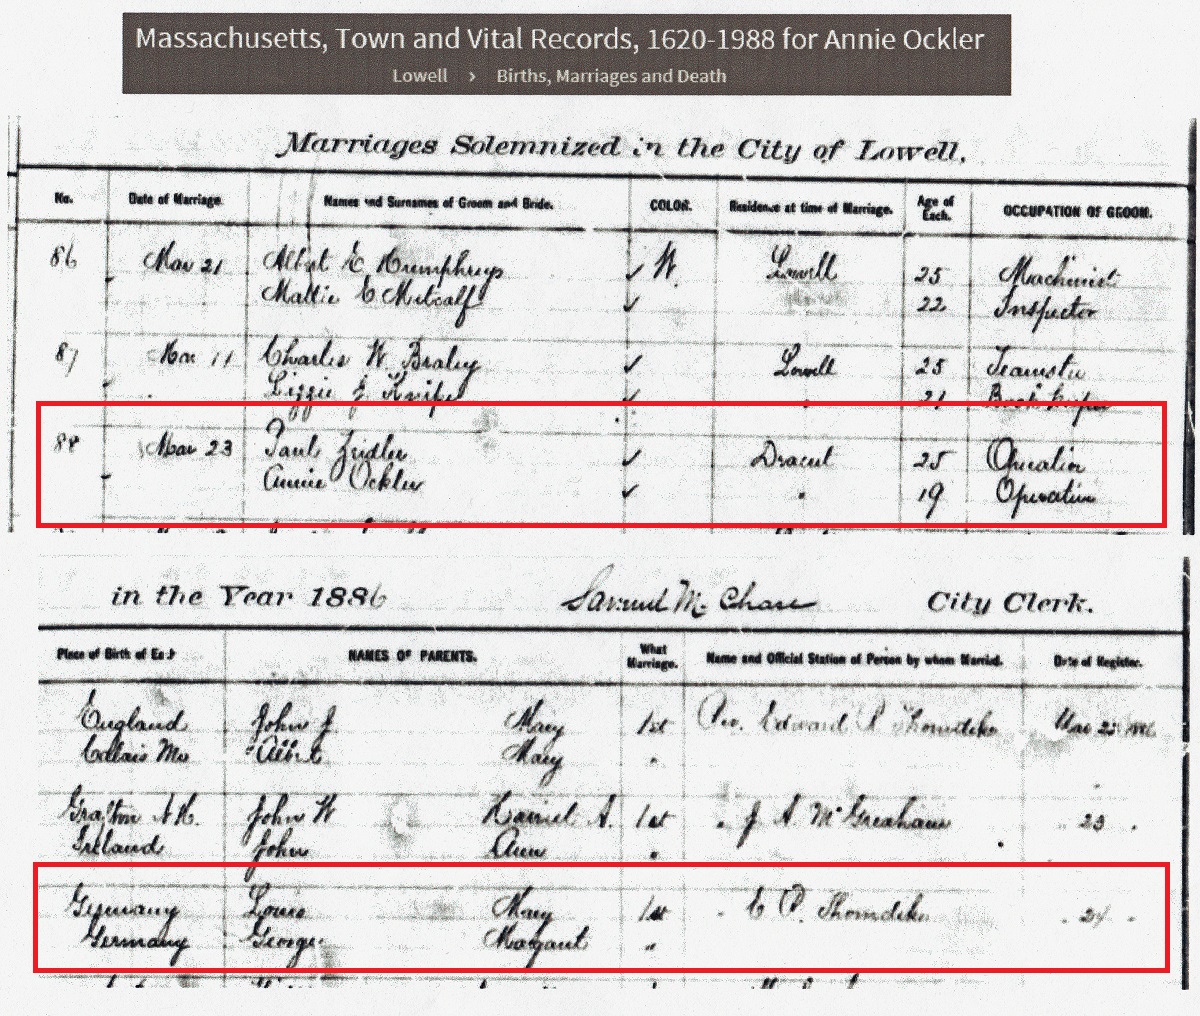 Massachusetts, Town and Vital Records, 1620-1988 for Annie Ockler
Lowell › Births, Marriages and Death
Marriages Solemnized in the City of Lowell.
No. Date of Marriage. Names and Surnames of Groom and Bride. COLOR. Residence at time of Marriage. Age of Each. OCCUPATION OF GROOM.
86 Mar 21 Albert E Humphreys ✓ W. Lowell 25 Machinist
Mattie C Metcalf ✓ 22 Inspector
87 Mar 11 Charles W Braley ✓ Lowell 25 Teamster
Lizzie J Knipe ✓ " 21 Book keeper
88 Mar 23 Paul Zeidler ✓ Dracut 25 Operative
Annie Ockler ✓ " 19 Operative
in the Year 1886 Samuel M. Chase City Clerk.
Place of Birth of Each NAMES OF PARENTS. What Marriage. Name and Official Station of Person by whom Married. Date of Register.
England John J. Mary 1st Rev. Edward P Thorndike Mar 23
Calais Me Albert Mary "
Grafton N.H. John W Harriet A. 1st " J A McGreahaw " 23 "
Ireland John Ann "
Germany Louis Mary 1st " E P. Thorndike " 24 "
Germany George Margaret "